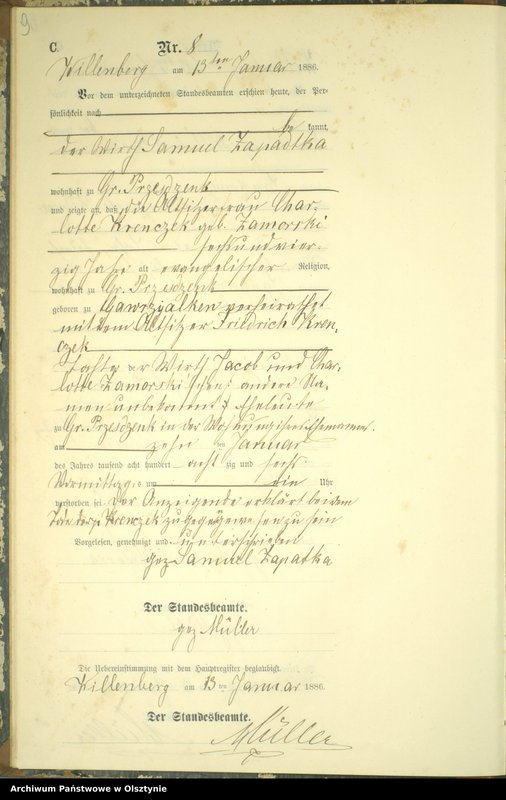 9
C.
Nr. 8
Willenberg am 13ten Januar 1886.
Vor dem unterzeichneten Standesbeamten erschien heute, der Per-
sönlichkeit nach
be kannt,
der Wirth Samuel Zapadtka
wohnhaft zu Gr. Przesdzenk
und zeigte an, daß die Altsitzerfrau Char-
lotte Krenczek geb. Zamorski
sechsundvier-
zig Jahre alt evangelischer Religion,
wohnhaft zu Gr. Przesdzenk
geboren zu Gawrzialken verheirathet
mit dem Altsitzer Friedrich Kren-
czek
Tochter der Wirth Jacob und Char-
lotte Zamorski'schen: andere Na-
men unbekannt: Eheleute
zu Gr. Przesdzenk in der Wohnung ihres Ehemannes
am zehn ten Januar
des Jahres tausend acht hundert acht zig und sechs
Vormittags um ein Uhr
verstorben sei. Der Anzeigende erklärt bei dem
Tode der p. Krenczek zugegen gewesen zu sein
Vorgelesen, genehmigt und unterschrieben
gez Samuel Zapadka
Der Standesbeamte.
gez Müller
Die Uebereinstimmung mit dem Hauptregister beglaubigt.
Willenberg am 13 ten Januar 1886.
Der Standesbeamte.
Müller
Archiwum Państwowe w Olsztynie